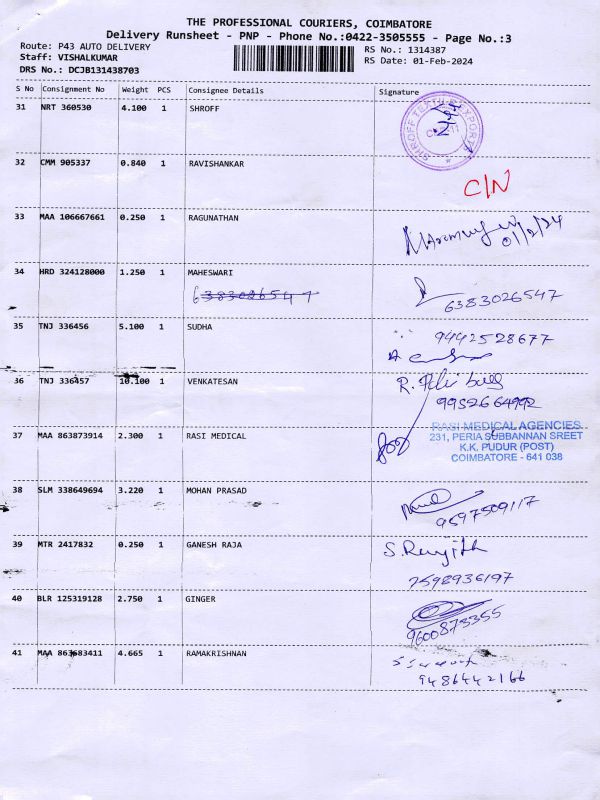 THE PROFESSIONAL COURIERS, COIMBATORE
Delivery Runsheet - PNP - Phone No.:0422-3505555 - Page No.:3
Route: P43 AUTO DELIVERY
RS No.: 1314387
Staff: VISHALKUMAR
RS Date: 01-Feb-2024
DRS No.: DCJB131438703
S No Consignment No Weight PCS Consignee Details Signature
31 NRT 360530 4.100 1 SHROFF
SHROFF TEXTILE EXPORTS
32 CMM 905337 0.840 1 RAVISHANKAR
C/N
33 MAA 106667661 0.250 1 RAGUNATHAN
01/2/24
34 HRD 324128000 1.250 1 MAHESWARI
6383026547
6383026547
35 TNJ 336456 5.100 1 SUDHA
9442528677
36 TNJ 336457 10.100 1 VENKATESAN
9952664992
37 MAA 863873914 2.300 1 RASI MEDICAL
RASI MEDICAL AGENCIES
231, PERIA SUBBANNAN SREET
K.K. PUDUR (POST)
COIMBATORE - 641 038
38 SLM 338649694 3.220 1 MOHAN PRASAD
9597509117
39 MTR 2417832 0.250 1 GANESH RAJA
S. Renjith
7598936197
40 BLR 125319128 2.750 1 GINGER
9600873355
41 MAA 863683411 4.665 1 RAMAKRISHNAN
9486442166